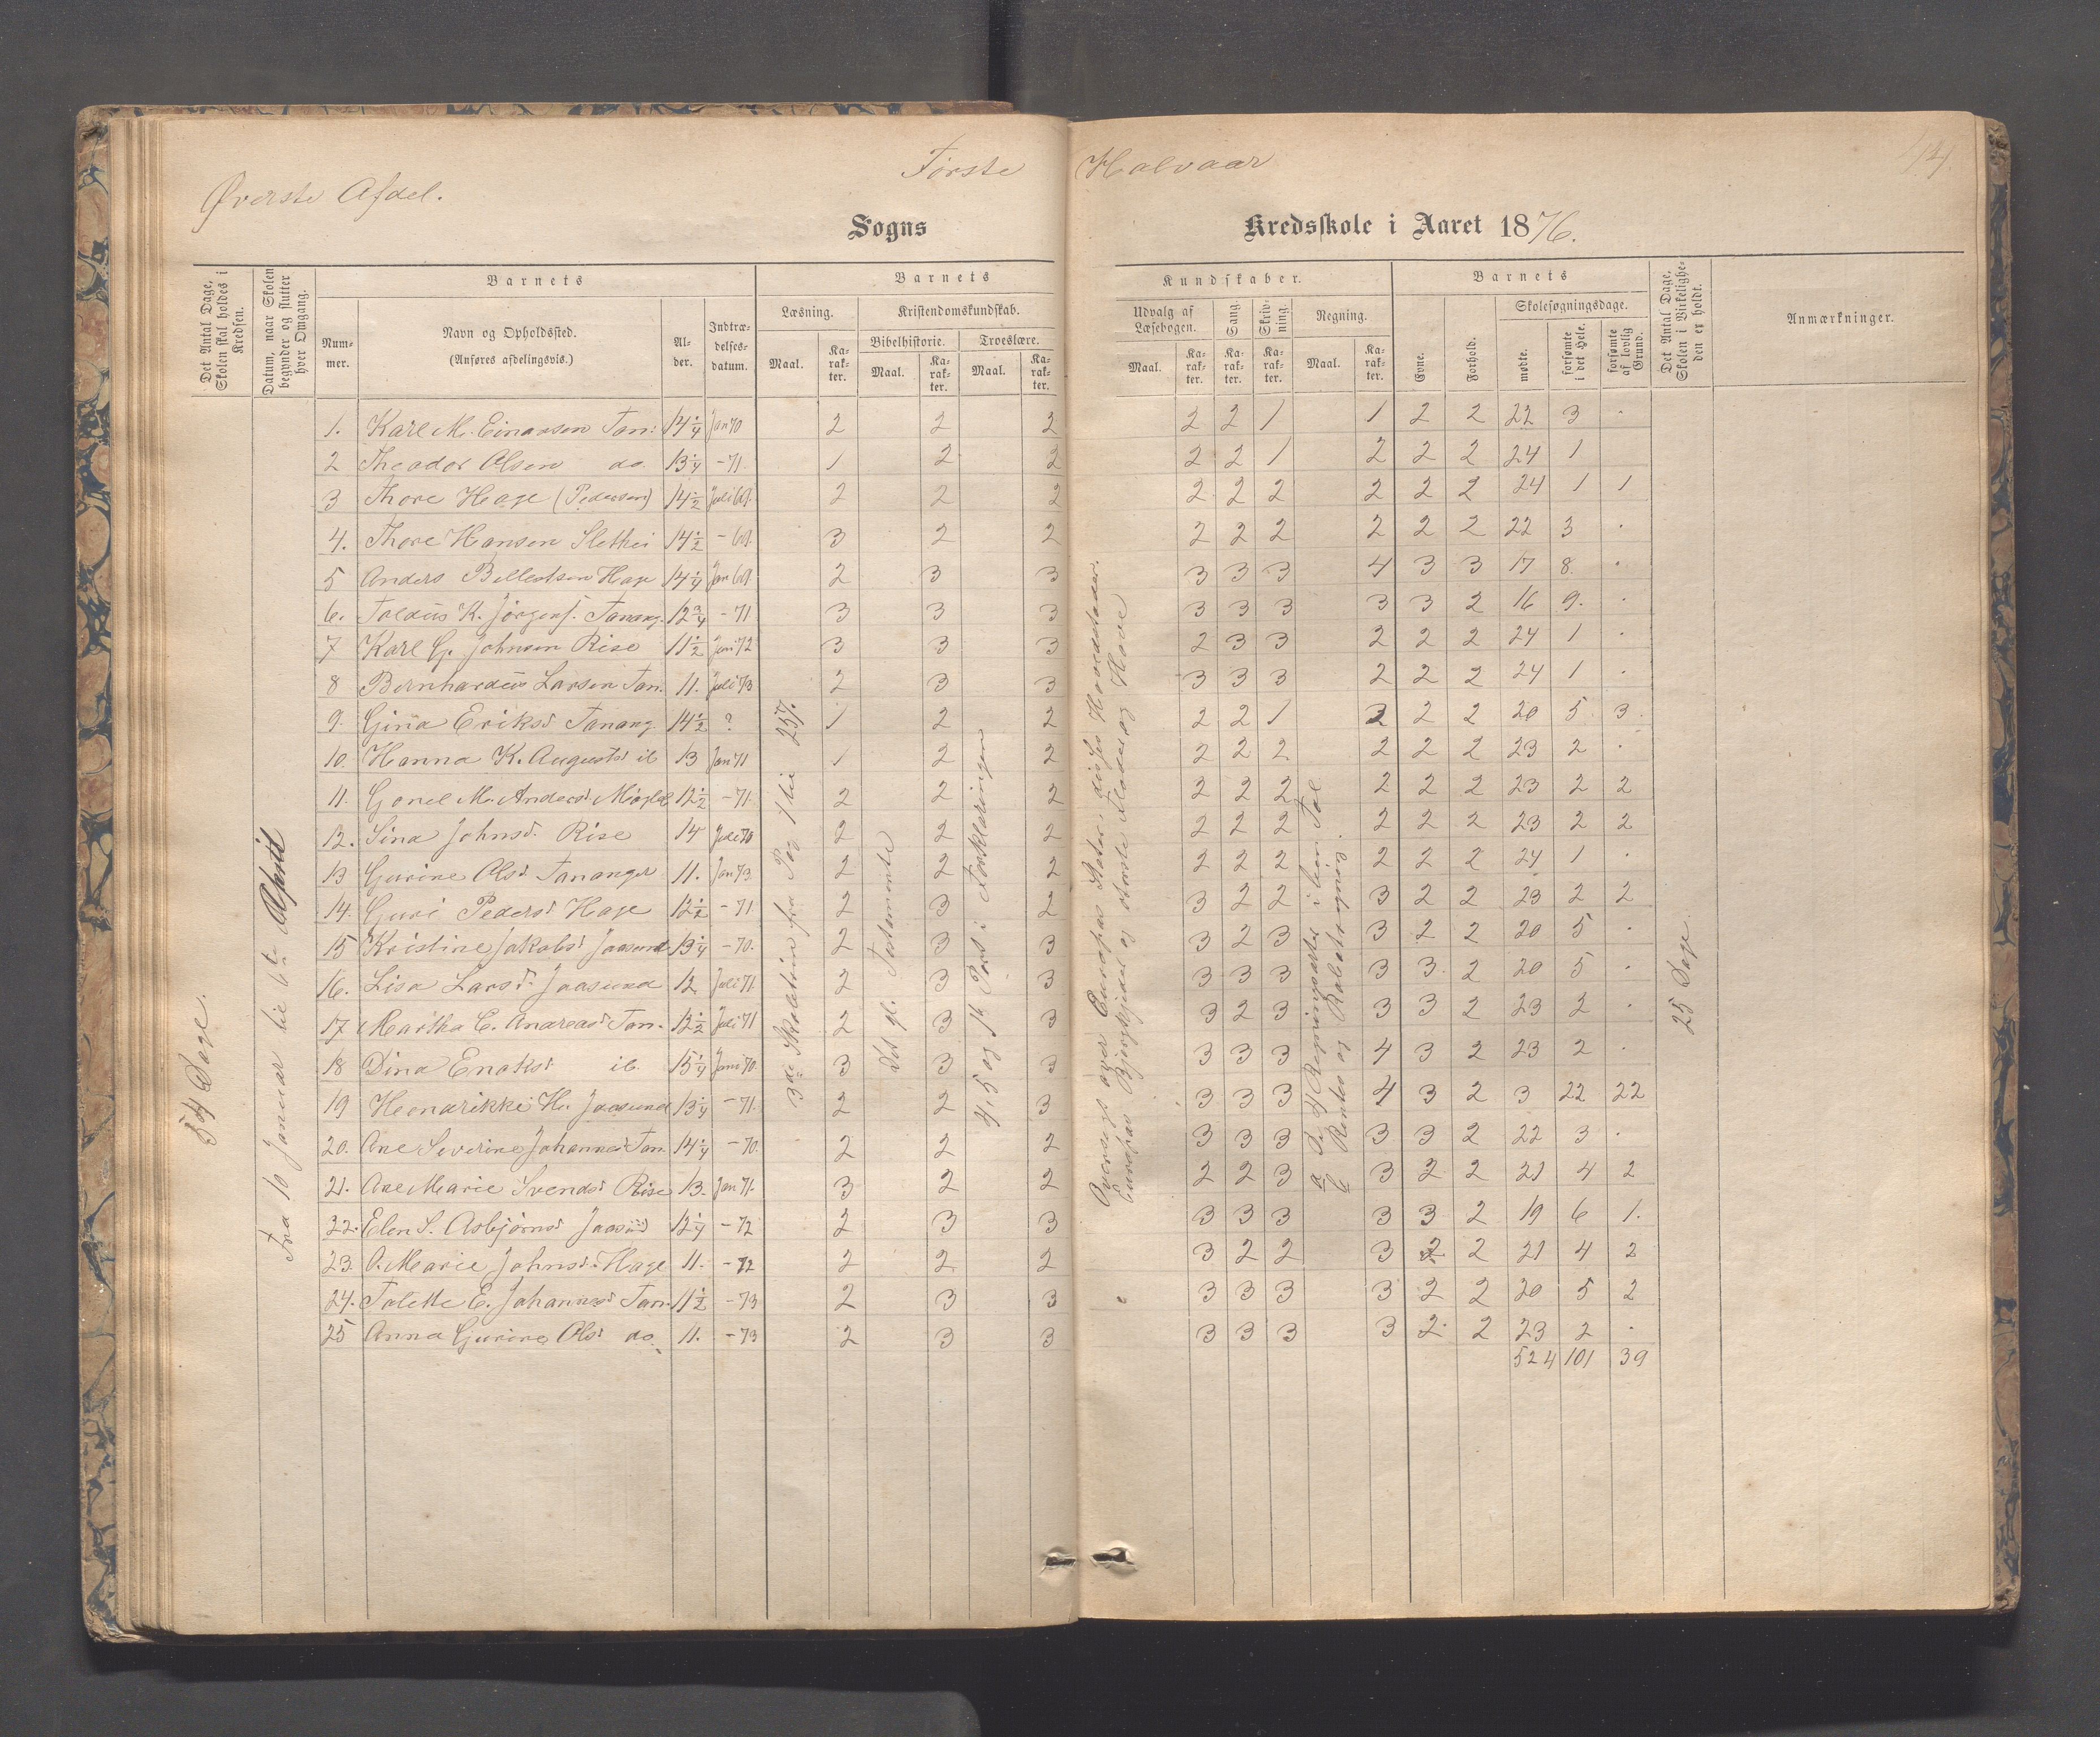 Første Halvaar
14
Øverste Afdel.
Sogns Kredsskole i Aaret 1876.
Det Antal Dage, Skolen skal holdes i Kredsen.
Datum, naar Skolen begynder og slutter hver Omgang.
Barnets
Nummer.
Navn og Opholdssted.
(Anføres afdelingsvis.)
Alder.
Indtrædelsesdatum.
Barnets
Læsning.
Kristendomskundskab.
Bibelhistorie.
Troeslære.
Maal.
Karakter.
Maal.
Karakter.
Maal.
Karakter.
Kundskaber.
Udvalg af Læsebogen.
Sang.
Skrivning.
Regning.
Maal.
Karakter.
Karakter.
Karakter.
Maal.
Karakter.
Barnets
Evne.
Forhold.
Skolesøgningsdage.
mødte.
forsømte i det Hele.
forsømte af lovlig Grund.
Det Antal Dage, Skolen i Virkeligheden er holdt.
Anmærkninger.
54 Dage.
Fra 10 Januar til 6te April
3de Skoletrin fra Pag 1 til 257.
Det gl. Testamente
4, 5 og 1ste Part i Forklaringen
Oversigt over Europas Stater, disses Hovedstæder.
Europas Bjergkjeder og største Floder og Have
a De 4 Regningsarter i hele Tal
b Rentes og Rabatregning.
25 Dage.
1. Karl M. Einarsen Tan: 14 1/4 Jan 70 2 2 2 2 2 1 1 2 2 22 3 .
2 Theodor Olsen do. 13 1/4 -71. 1 2 2 2 2 1 2 2 2 24 1
3 Thore Hage (Pedersen) 14 1/2 Juli 69. 2 2 2 2 2 2 2 2 2 24 1 1
4. Thore Hansen 14 1/2 -69. 3 2 2 2 2 2 2 2 2 22 3 .
5 Anders Hage 14 1/4 Jan 69. 2 3 3 3 3 3 4 3 3 17 8. .
6. K. Jörgens. Tanang. 12 3/4 -71 3 3 3 3 3 3 3 3 2 16 9. .
7 Karl G. Johnsen Rise 11 1/2 Jan 72 3 3 3 2 3 3 2 2 2 24 1 .
8 Bernhardus Larsen Tan. 11. Juli 73 2 3 3 3 3 3 2 2 2 24 1 .
9. Gina Eriksd Tanang. 14 1/2 ? 1 2 2 2 2 1 2 2 2 20 5 3.
10. Hanna K. Augustsd ib 13 Jan 71 1 2 2 2 2 2 2 2 2 23 2 .
11. Gonel M. Andersd. 12 1/2 -71. 2 2 2 2 2 2 2 2 2 23 2 2
12. Sina Johnsd. Rise 14 Juli 70 2 2 2 2 2 2 2 2 2 23 2 2
13 Gurine Olsd Tananger 11. Jan 73. 2 2 2 2 2 2 2 2 2 24 1 .
14. Guri Pedersd Hage 12 1/2 -71 2 3 2 3 2 2 3 2 2 23 2 2
15 Kristine Jakobsd Jaasund 13 1/4 -70. 2 3 3 3 2 3 3 2 2 20 5 .
16. Lisa Larsd. Jaasund 12 Juli 71. 2 3 3 3 3 3 3 3. 2 20 5 .
17 Martha C. Andreasd Tan. 12 1/2 Juli 71 2 3 3 3 2 3 3 3 2 23 2 .
18 Dina Enoksd ib. 15 1/4 Jan 70. 3 3 3 3 3 3 4 3 2 23 2 .
19 Hendrikke H. Jaasund 13 1/4 -71. 2 2 3 3 3 3 4 3 2 3 22 22
20. Ane Severine Johannesd Tan. 14 1/4 -70. 2 2 2 3 3 3 3 3 2 22 3 .
21. Ane Marie Svendsd Rise 13. Jan 71. 3 2 2 2 2 3 3 2 2 21 4 2
22. Elen S. Asbjörnsd Jaasud 12 1/4 -72 2 3 3 3 3 3 3 3 2 19 6 1.
23. A. Marie Johnsd. Hage 11. -72 2 2 2 3 2 2 3 2 2 21 4 2
24. Talette E. Johannesd Tan. 11 1/2 -73 2 3 3 3 3 3 3 2 2 20 5 2
25 Anna Gurine Olsd do. 11. -73 2 3 3 3 3 3 3 2. 2 23 2 .
524 101 39